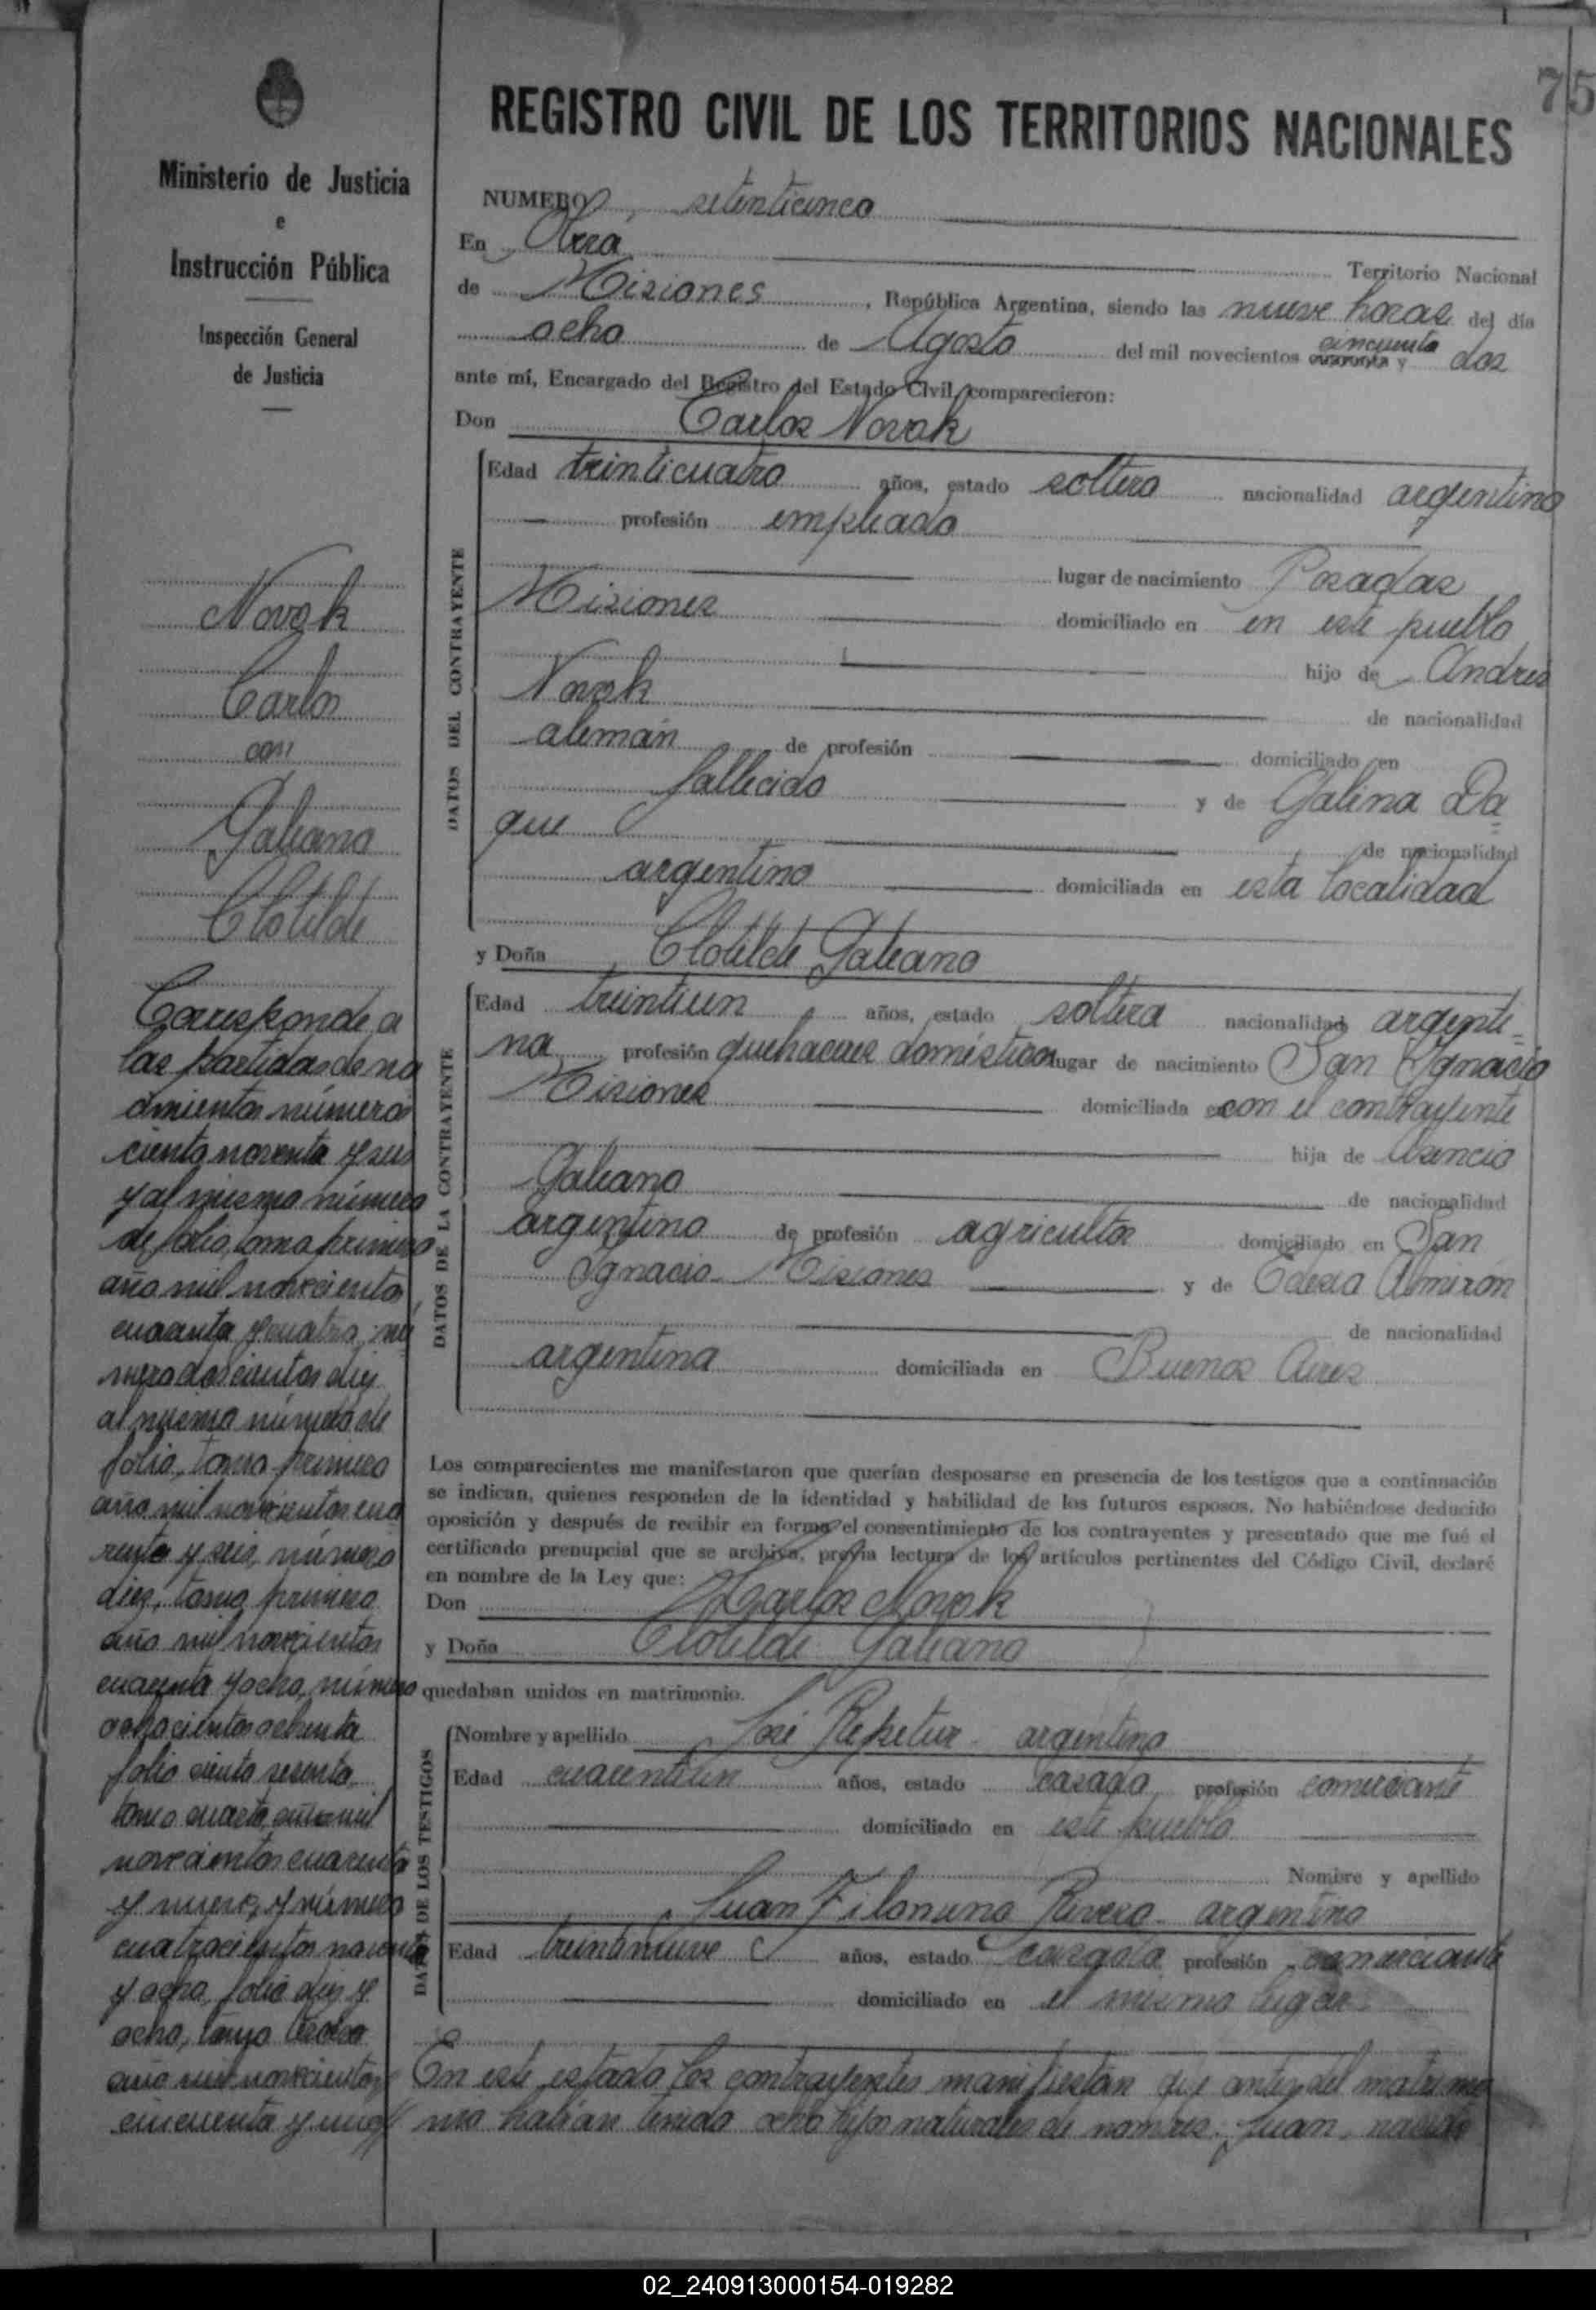 75
REGISTRO CIVIL DE LOS TERRITORIOS NACIONALES
Ministerio de Justicia
e
Instrucción Pública
Inspección General
de Justicia
Novak
Carlos
con
Galeano
Clotilde
Corresponde a
las partidas de na
cimientos número
ciento noventa y seis
y al mismo número
de folio, tomo primero
año mil novecientos
cuarenta y cuatro, nú
mero doscientos diez
al mismo número de
folio, tomo primero
año mil novecientos cua
renta y seis, número
diez, tomo primero
año mil novecientos
cuarenta y ocho, número
ochocientos ochenta
folio ciento sesenta
tomo cuarto, año mil
novecientos cuarenta
y nueve, y número
cuatrocientos noventa
y ocho, folio diez y
ocho, tomo
año mil novecientos
cincuenta y uno
NUMERO setenticinco
En Oberá Territorio Nacional
de Misiones, República Argentina, siendo las nueve horas del día
ocho de Agosto del mil novecientos cuarenta y cincuenta dos
ante mí, Encargado del Registro del Estado Civil, comparecieron:
Don Carlos Novak
DATOS DEL CONTRAYENTE
Edad treinticuatro años, estado soltero nacionalidad argentino
profesión empleado
lugar de nacimiento Posadas
Misiones domiciliado en en este pueblo
hijo de Andres
Novak de nacionalidad
alemán de profesión domiciliado en
fallecido y de Galina Da
que de nacionalidad
argentino domiciliada en esta localidad
y Doña Clotilde Galeano
DATOS DE LA CONTRAYENTE
Edad treintiun años, estado soltera nacionalidad argenti-
na profesión quehaceres domésticos lugar de nacimiento San Ignacio
Misiones domiciliada en con el contrayente
hija de Asencio
Galeano de nacionalidad
argentino de profesión agricultor domiciliado en San
Ignacio Misiones y de Almirón
de nacionalidad
argentina domiciliada en Buenos Aires
Los comparecientes me manifestaron que querían desposarse en presencia de los testigos que a continuación
se indican, quienes responden de la identidad y habilidad de los futuros esposos. No habiéndose deducido
oposición y después de recibir en forma el consentimiento de los contrayentes y presentado que me fué el
certificado prenupcial que se archiva, previa lectura de los artículos pertinentes del Código Civil, declaré
en nombre de la Ley que:
Don Carlos Novak
y Doña Clotilde Galeano
quedaban unidos en matrimonio.
DATOS DE LOS TESTIGOS
Nombre y apellido José Repetur - argentino
Edad cuarentiun años, estado casado profesión comerciante
domiciliado en este pueblo
Nombre y apellido
Juan Rivero - argentino
Edad treintinueve años, estado casado profesión comerciante
domiciliado en el mismo lugar
En este estado los contrayentes manifiestan que antes del matrimo
nio habían tenido ocho hijos naturales de nombres: Juan, nacido
02_240913000154-019282